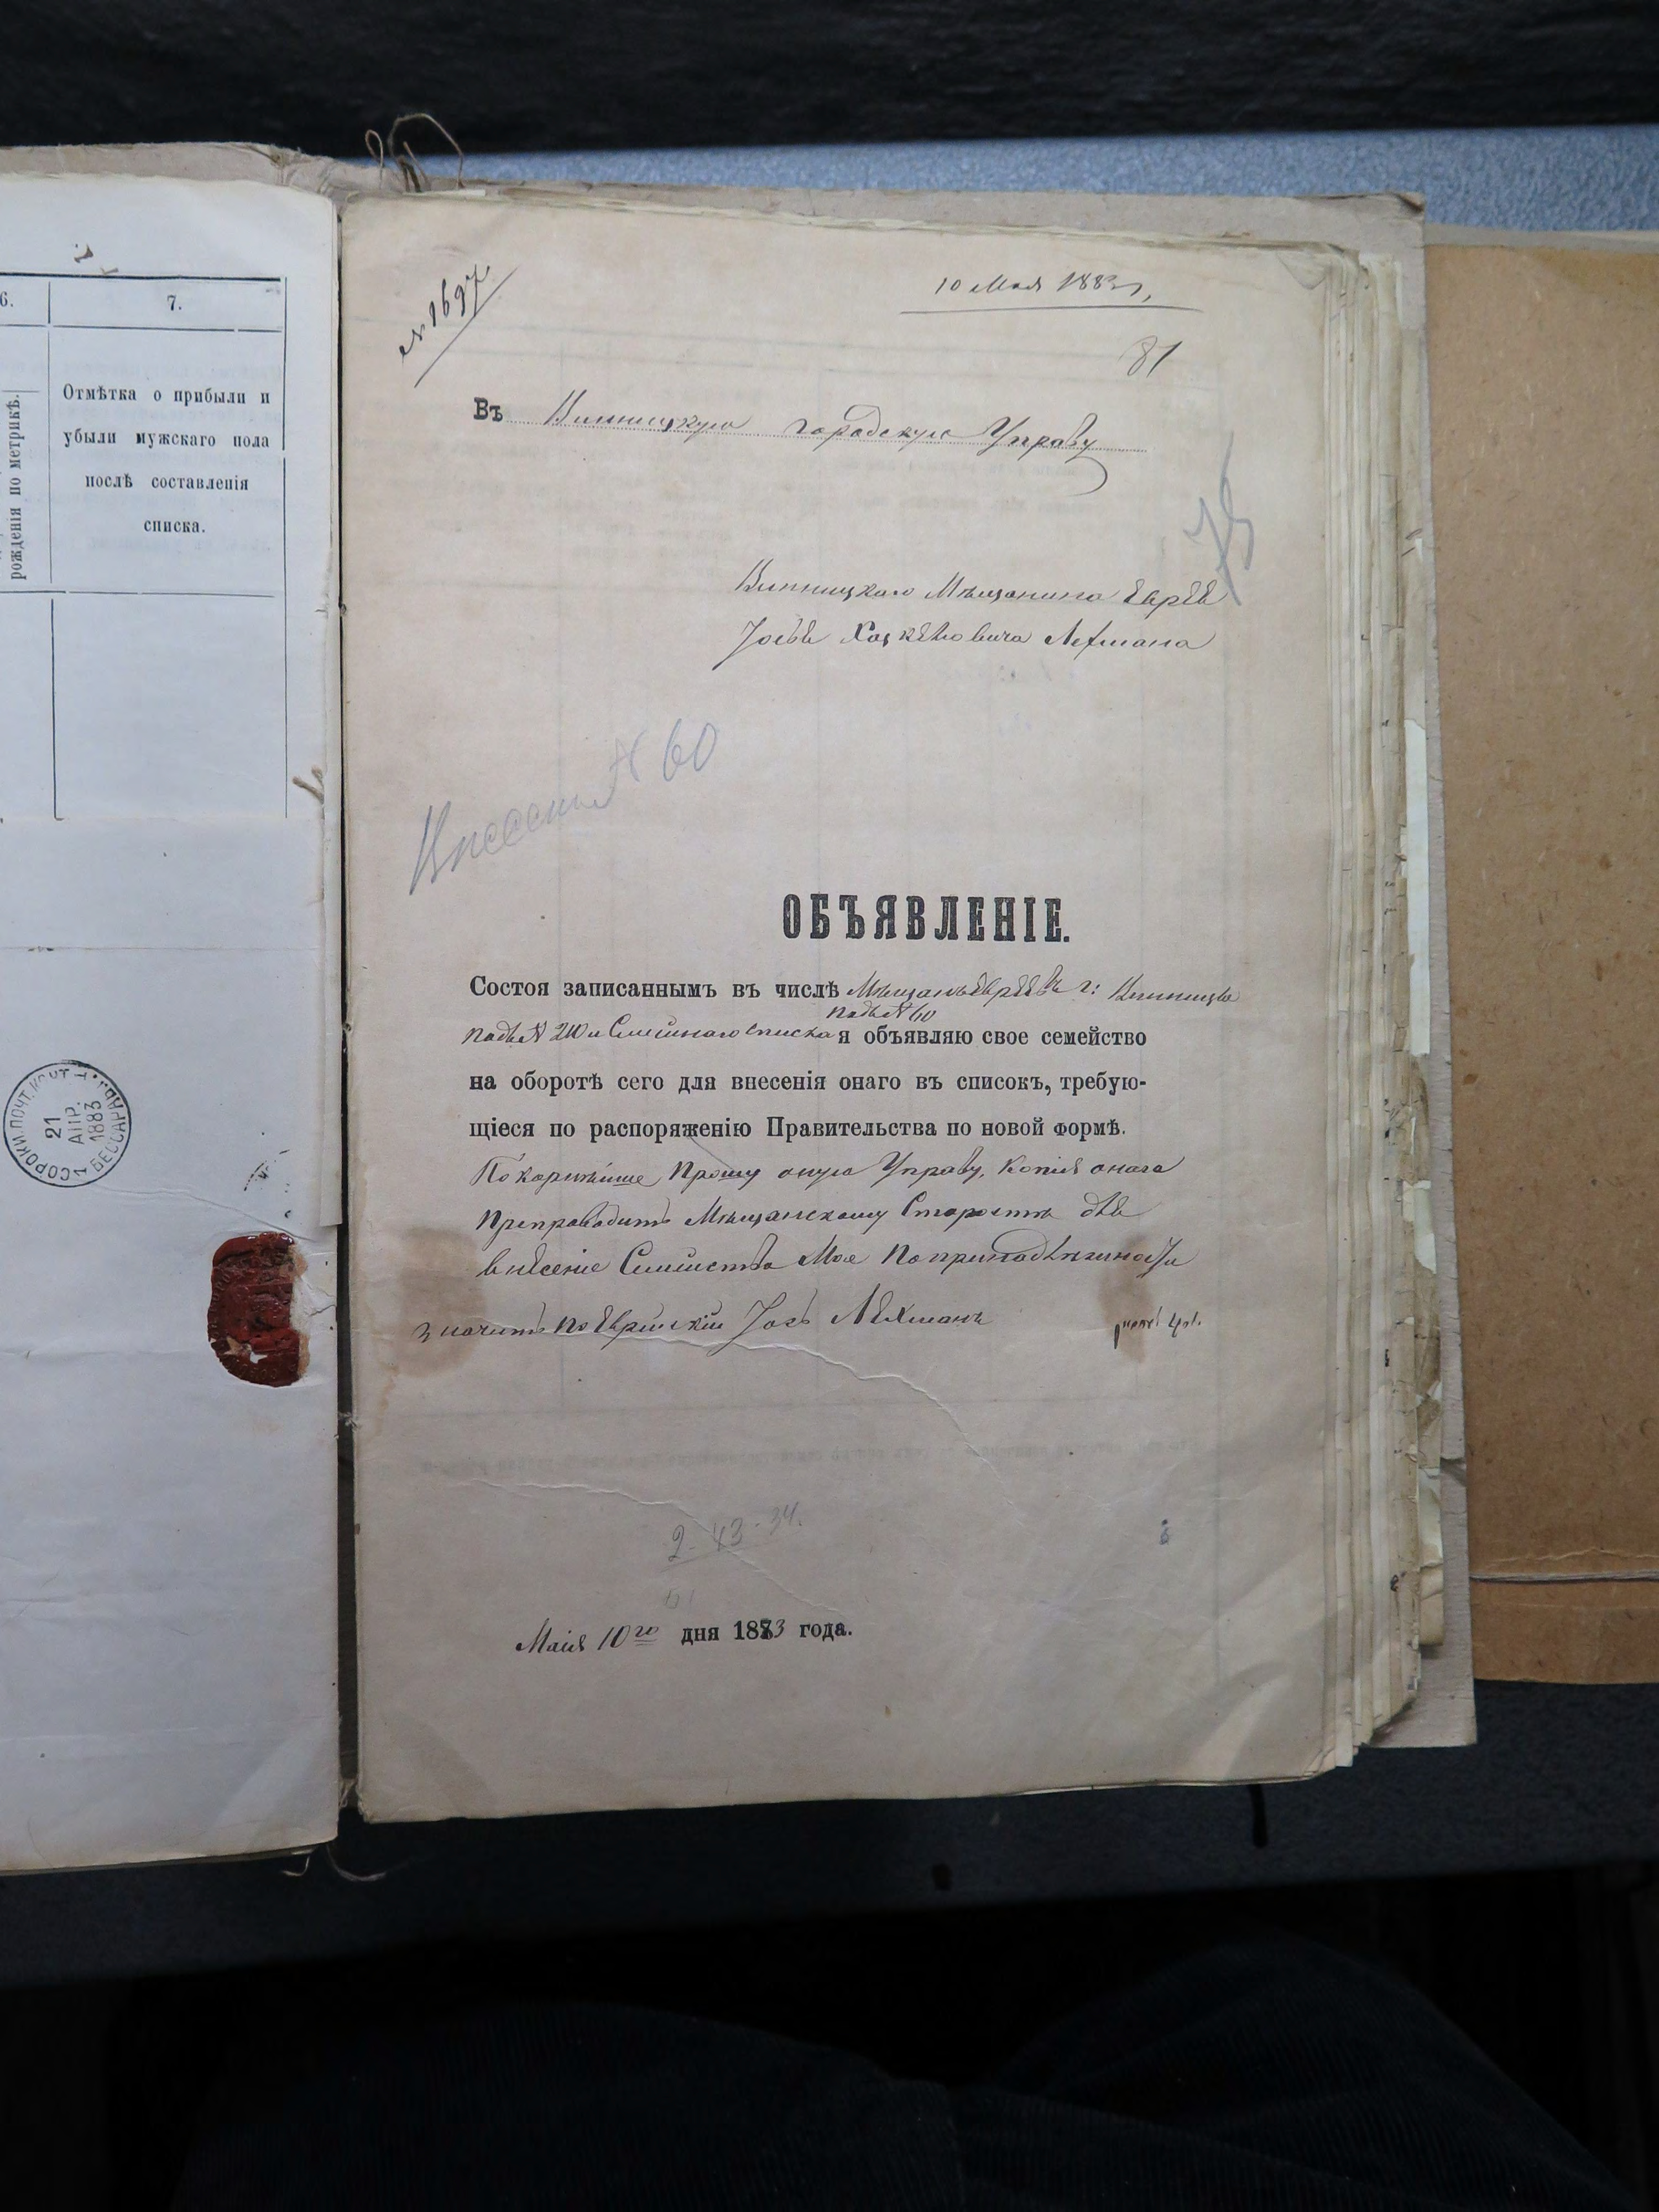 6.
7.
рожденія по метрикѣ.
Отмѣтка о прибыли и
убыли мужскаго пола
послѣ составленія
списка.
СОРОКИ. ПОЧТ. КОНТ.
21
АПР.
1883
БЕССАРАБ.
№ 1697
10 Мая 1883 г.
81
Въ Винницкую городскую Управу
Винницкаго Мѣщанина Еврея
Лехмана
Внесенъ № 60
ОБЪЯВЛЕНІЕ.
Состоя записаннымъ въ числѣ Мѣщанъ Евреевъ г: Винницы
подъ № 60
подъ № Семейнаго списка я объявляю свое семейство
на оборотѣ сего для внесенія онаго въ списокъ, требую-
щіеся по распоряженію Правительства по новой формѣ.
Покорнѣйше Прошу оную Управу, Копія онаго
Препроводить Мѣщанскому Старостѣ для
внесеніе Семейства Мое По принадлежности
значитъ по Еврейскіи Іось Лехманъ
2-43-34.
61
Маія 10го дня 1883 года.